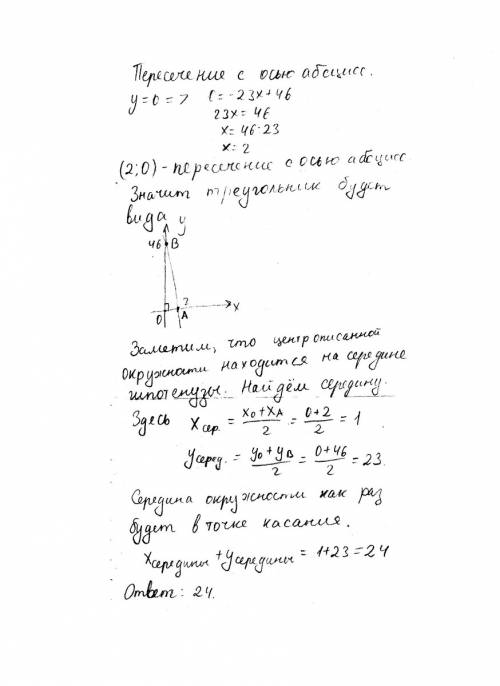 Пересечение с осью абсцисс.
y=0 => 0=-23x+46
23x=46
x=46:23
x=2
(2;0) - пересечение с осью абсцисс
Значит треугольник будет
вида
y
46 B
2
0 A x
Заметим, что центр описанной
окружности находится на середине
гипотенузы. Найдём середину.
Здесь x сер. = x₀+xA/2 = 0+2/2 = 1
y серед. = y₀+yB/2 = 0+46/2 = 23.
Середина окружности как раз
будет в точке касания.
x середины + y середины = 1+23=24
Ответ: 24.